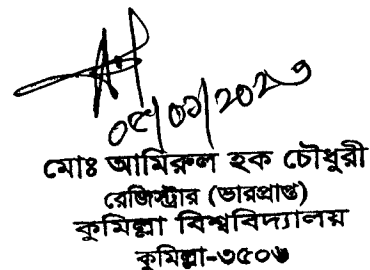 ০৫/০১/২০২৩
মোঃ আমিরুল হক চৌধুরী
রেজিস্ট্রার (ভারপ্রাপ্ত)
কুমিল্লা বিশ্ববিদ্যালয়
কুমিল্লা-৩৫০৬